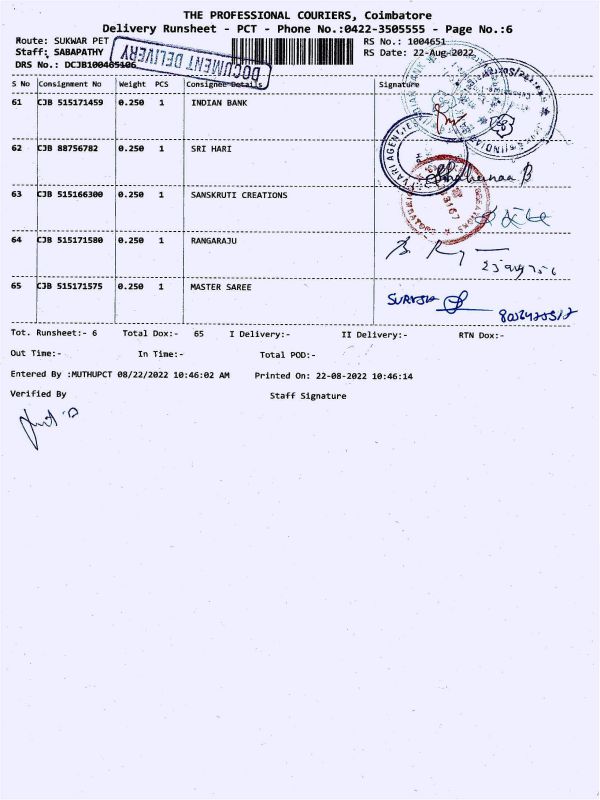 THE PROFESSIONAL COURIERS, Coimbatore
Delivery Runsheet - PCT - Phone No.:0422-3505555 - Page No.:6
Route: SUKWAR PET RS No.: 1004651
Staff: SABAPATHY RS Date: 22-Aug-2022
DRS No.: DCJB100465106
DOCUMENT DELIVERY
S No Consignment No Weight PCS Consignee Details Signature
61 CJB 515171459 0.250 1 INDIAN BANK
62 CJB 88756782 0.250 1 SRI HARI
63 CJB 515166300 0.250 1 SANSKRUTI CREATIONS
64 CJB 515171580 0.250 1 RANGARAJU
65 CJB 515171575 0.250 1 MASTER SAREE
Tot. Runsheet:- 6 Total Dox:- 65 I Delivery:- II Delivery:- RTN Dox:-
Out Time:- In Time:- Total POD:-
Entered By :MUTHUPCT 08/22/2022 10:46:02 AM Printed On: 22-08-2022 10:46:14
Verified By Staff Signature